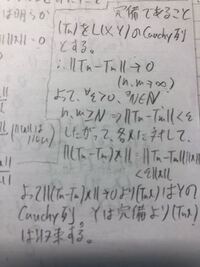 は明らか
完備であること
(Tn)をL(X,Y)のCauchy列
とする。
∴||Tn-Tm||→0
(n,m→∞)
よって、∀ε>0, ∃N∈N
n,m≥N ⇒ ||Tn-Tm||<ε
したがって、各xに対して、
||(Tn-Tm)x|| = ||Tn-Tm|| ||x||
<ε||x||
よって||(Tn-Tm)x||→0より(Tnx)はYの
Cauchy列、Yは完備より(Tnx)
は収束する。